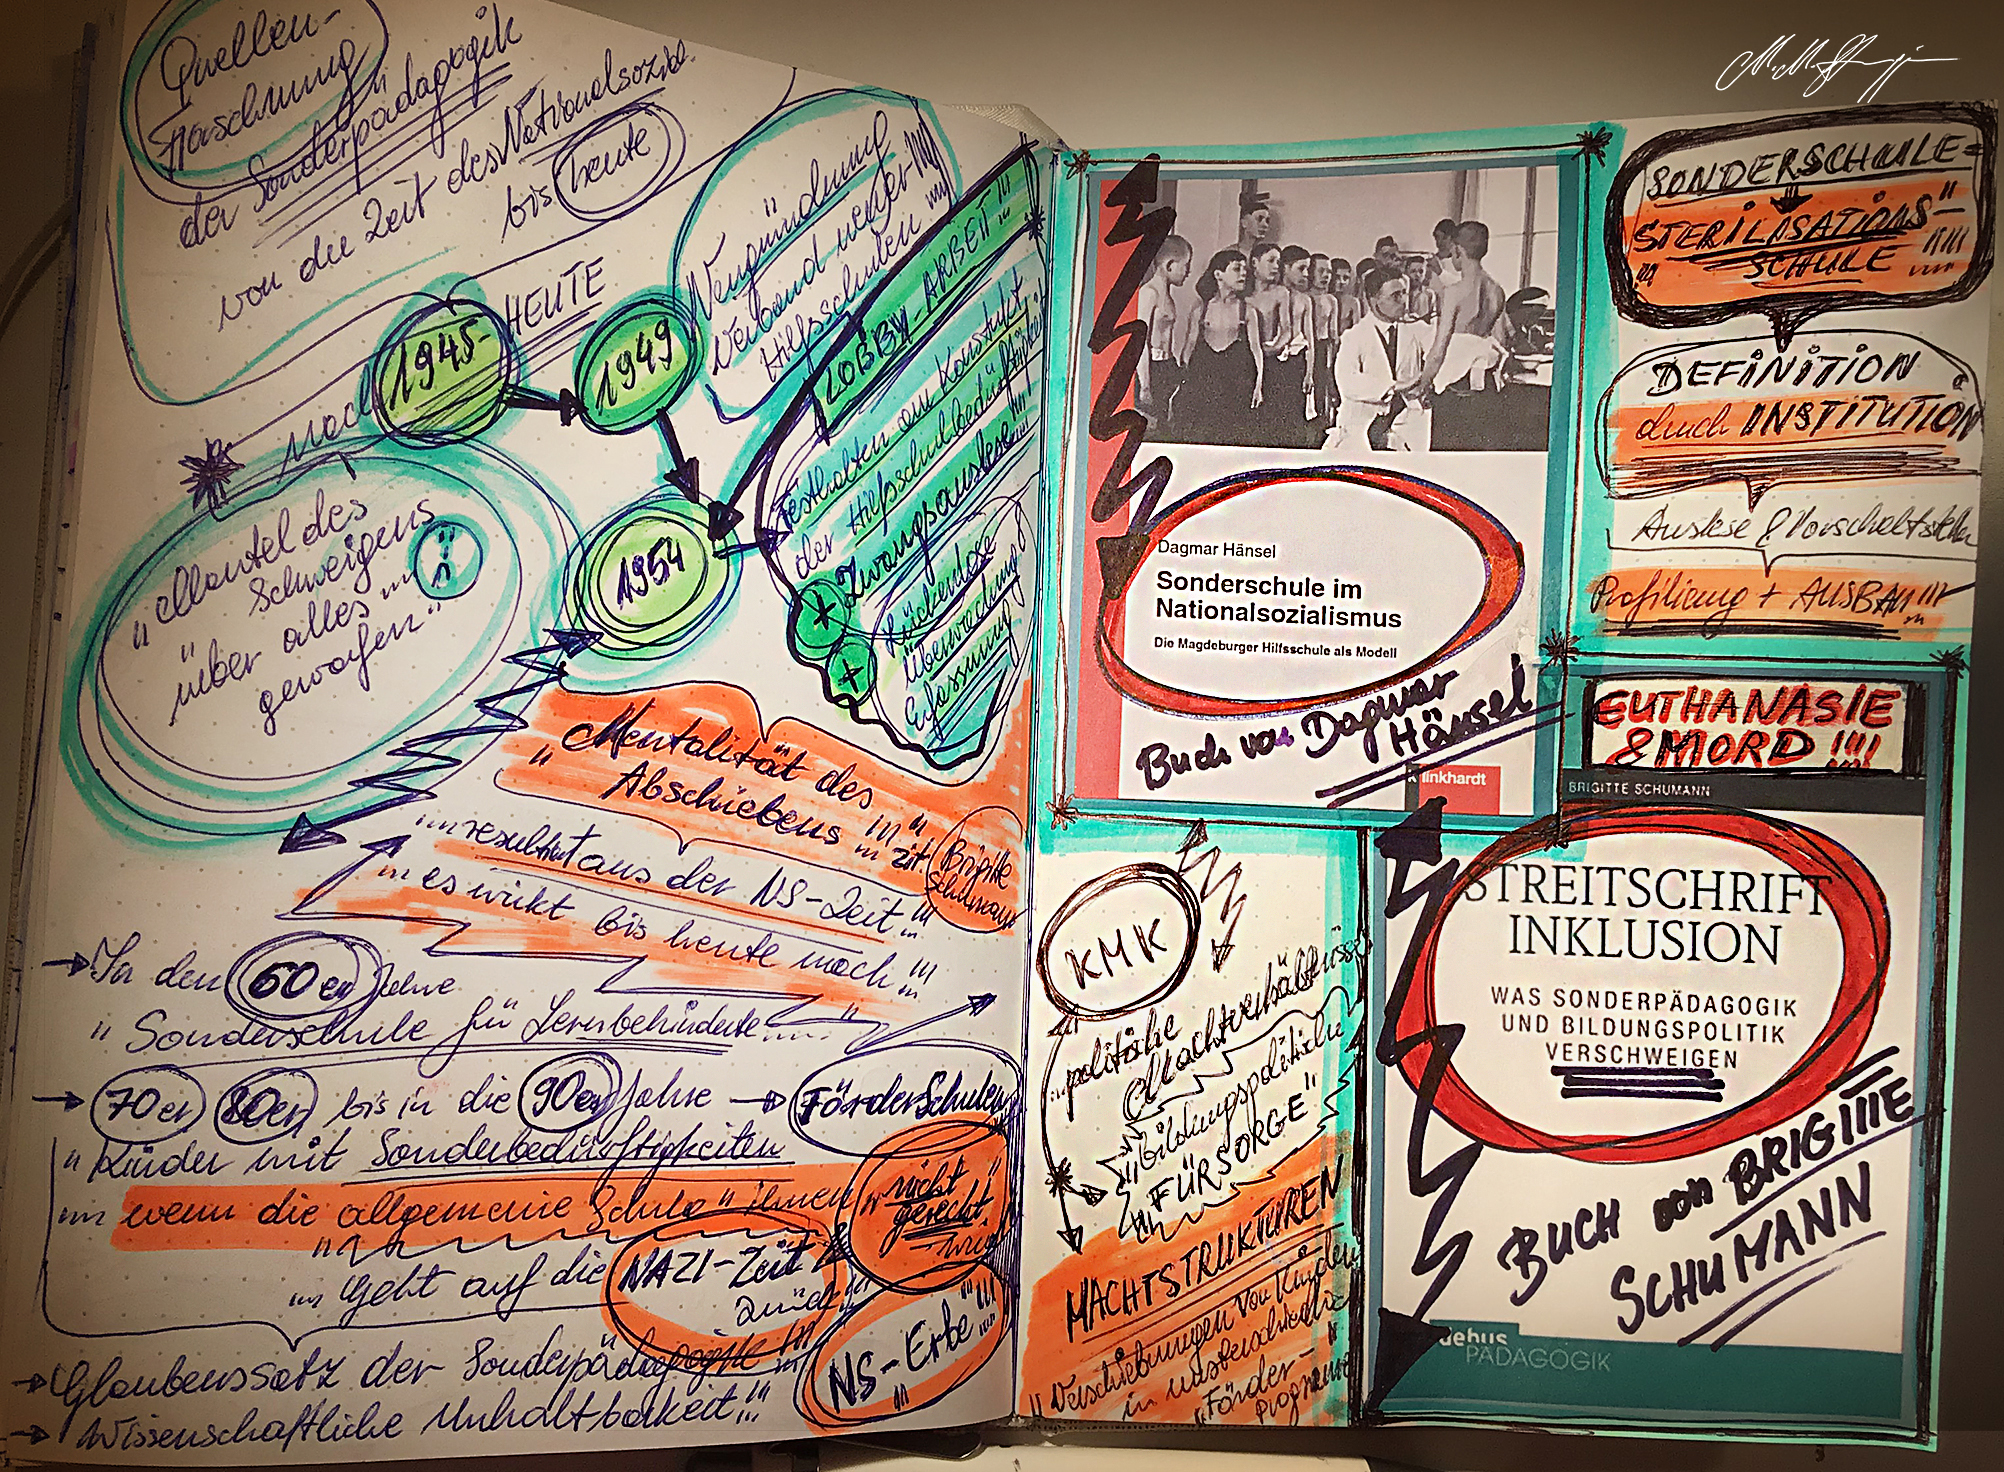 Quellen-
forschung
der Sonderpädagogik
von der Zeit des Nationalsozial.
bis heute
nach 1945- HEUTE
1949
Neugründung
Verband
Hilfsschulen
LOBBY-ARBEIT"
Festhalten am Konstrukt
der Hilfsschulbedürftigkeit
* Zwangsauslese
+ Lückenlose
Überwachung
Erfassung
1954
"Mantel des
Schweigens
über alles
geworfen"
"Mentalität des
Abschiebens !!! "
zit. Brigitte
Schumann
resultiert aus der NS-Zeit !!!
es wirkt bis heute noch !!!
→ In den 60er Jahre
"Sonderschule für Lernbehinderte"
→ 70er 80er bis in die 90er Jahre → FörderSchulen
"Kinder mit Sonderbedürftigkeiten
wenn die allgemeine Schule" ihnen
"nicht
gerecht
wird"
Geht auf die NAZI-Zeit
zurück
NS-Erbe"!!!
→ Glaubenssatz der Sonderpädagogik !!!
→ Wissenschaftliche Unhaltbarkeit !!!
Dagmar Hänsel
Sonderschule im
Nationalsozialismus
Die Magdeburger Hilfsschule als Modell
Buch von Dagmar
Hänsel
klinkhardt
SONDERSCHULE=
STERILISATIONS-
SCHULE
DEFINITION
durch INSTITUTION
Auslese &
Profilierung + AUSBAU !!!
EUTHANASIE
& MORD !!!!
BRIGITTE SCHUMANN
STREITSCHRIFT
INKLUSION
WAS SONDERPÄDAGOGIK
UND BILDUNGSPOLITIK
VERSCHWEIGEN
BUCH von BRIGITTE
SCHUMANN
debus
PÄDAGOGIK
KMK
politische
Machtverhältnisse
"bildungspolitische
FÜRSORGE"
MACHTSTRUKTUREN
"Verschiebungen von Kindern
in unterschiedliche
"Förder-
programme